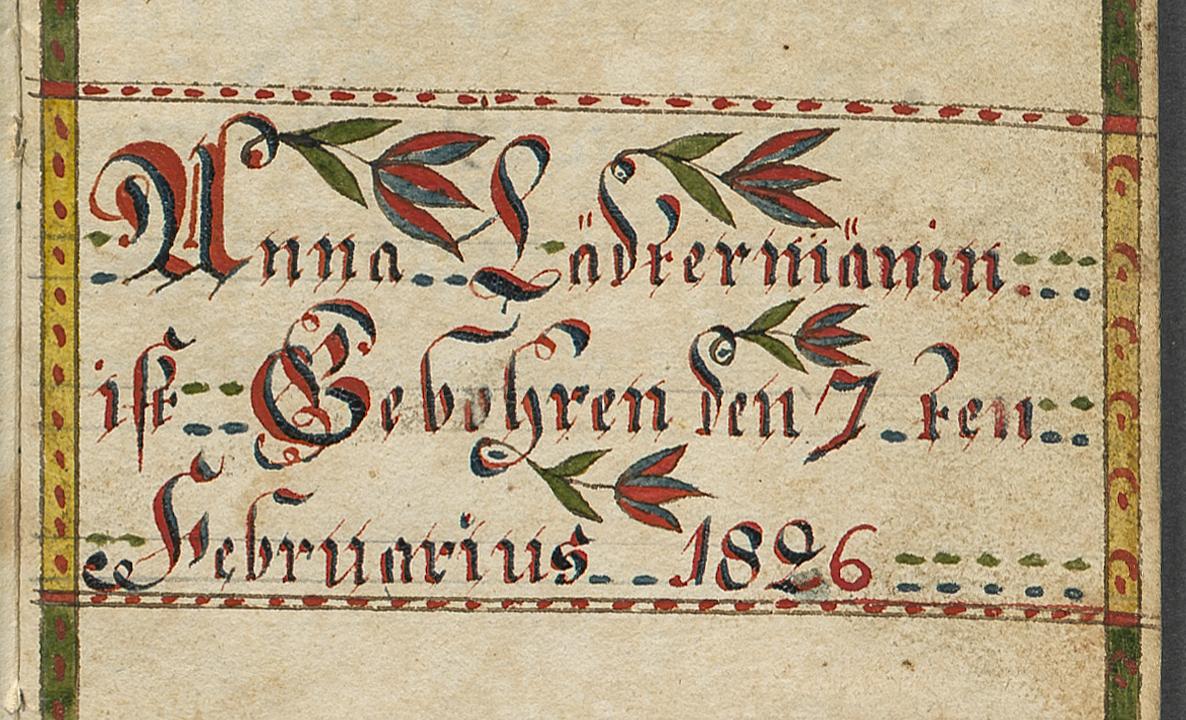 Anna Lädtermänin
ist Gebohren den 7 ten
Februarius 1826